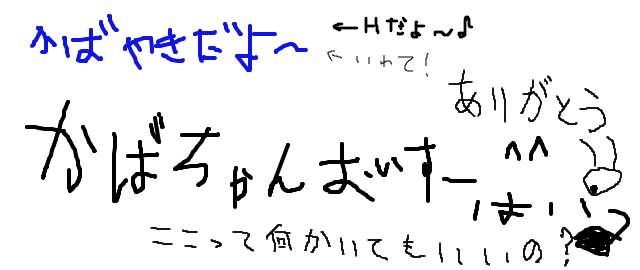 かばやきだよ～
←Hだよ～♪
←いわて！
ありがとう
^^
かばちゃんおいすー
はい
ここって何かいてもいいの？